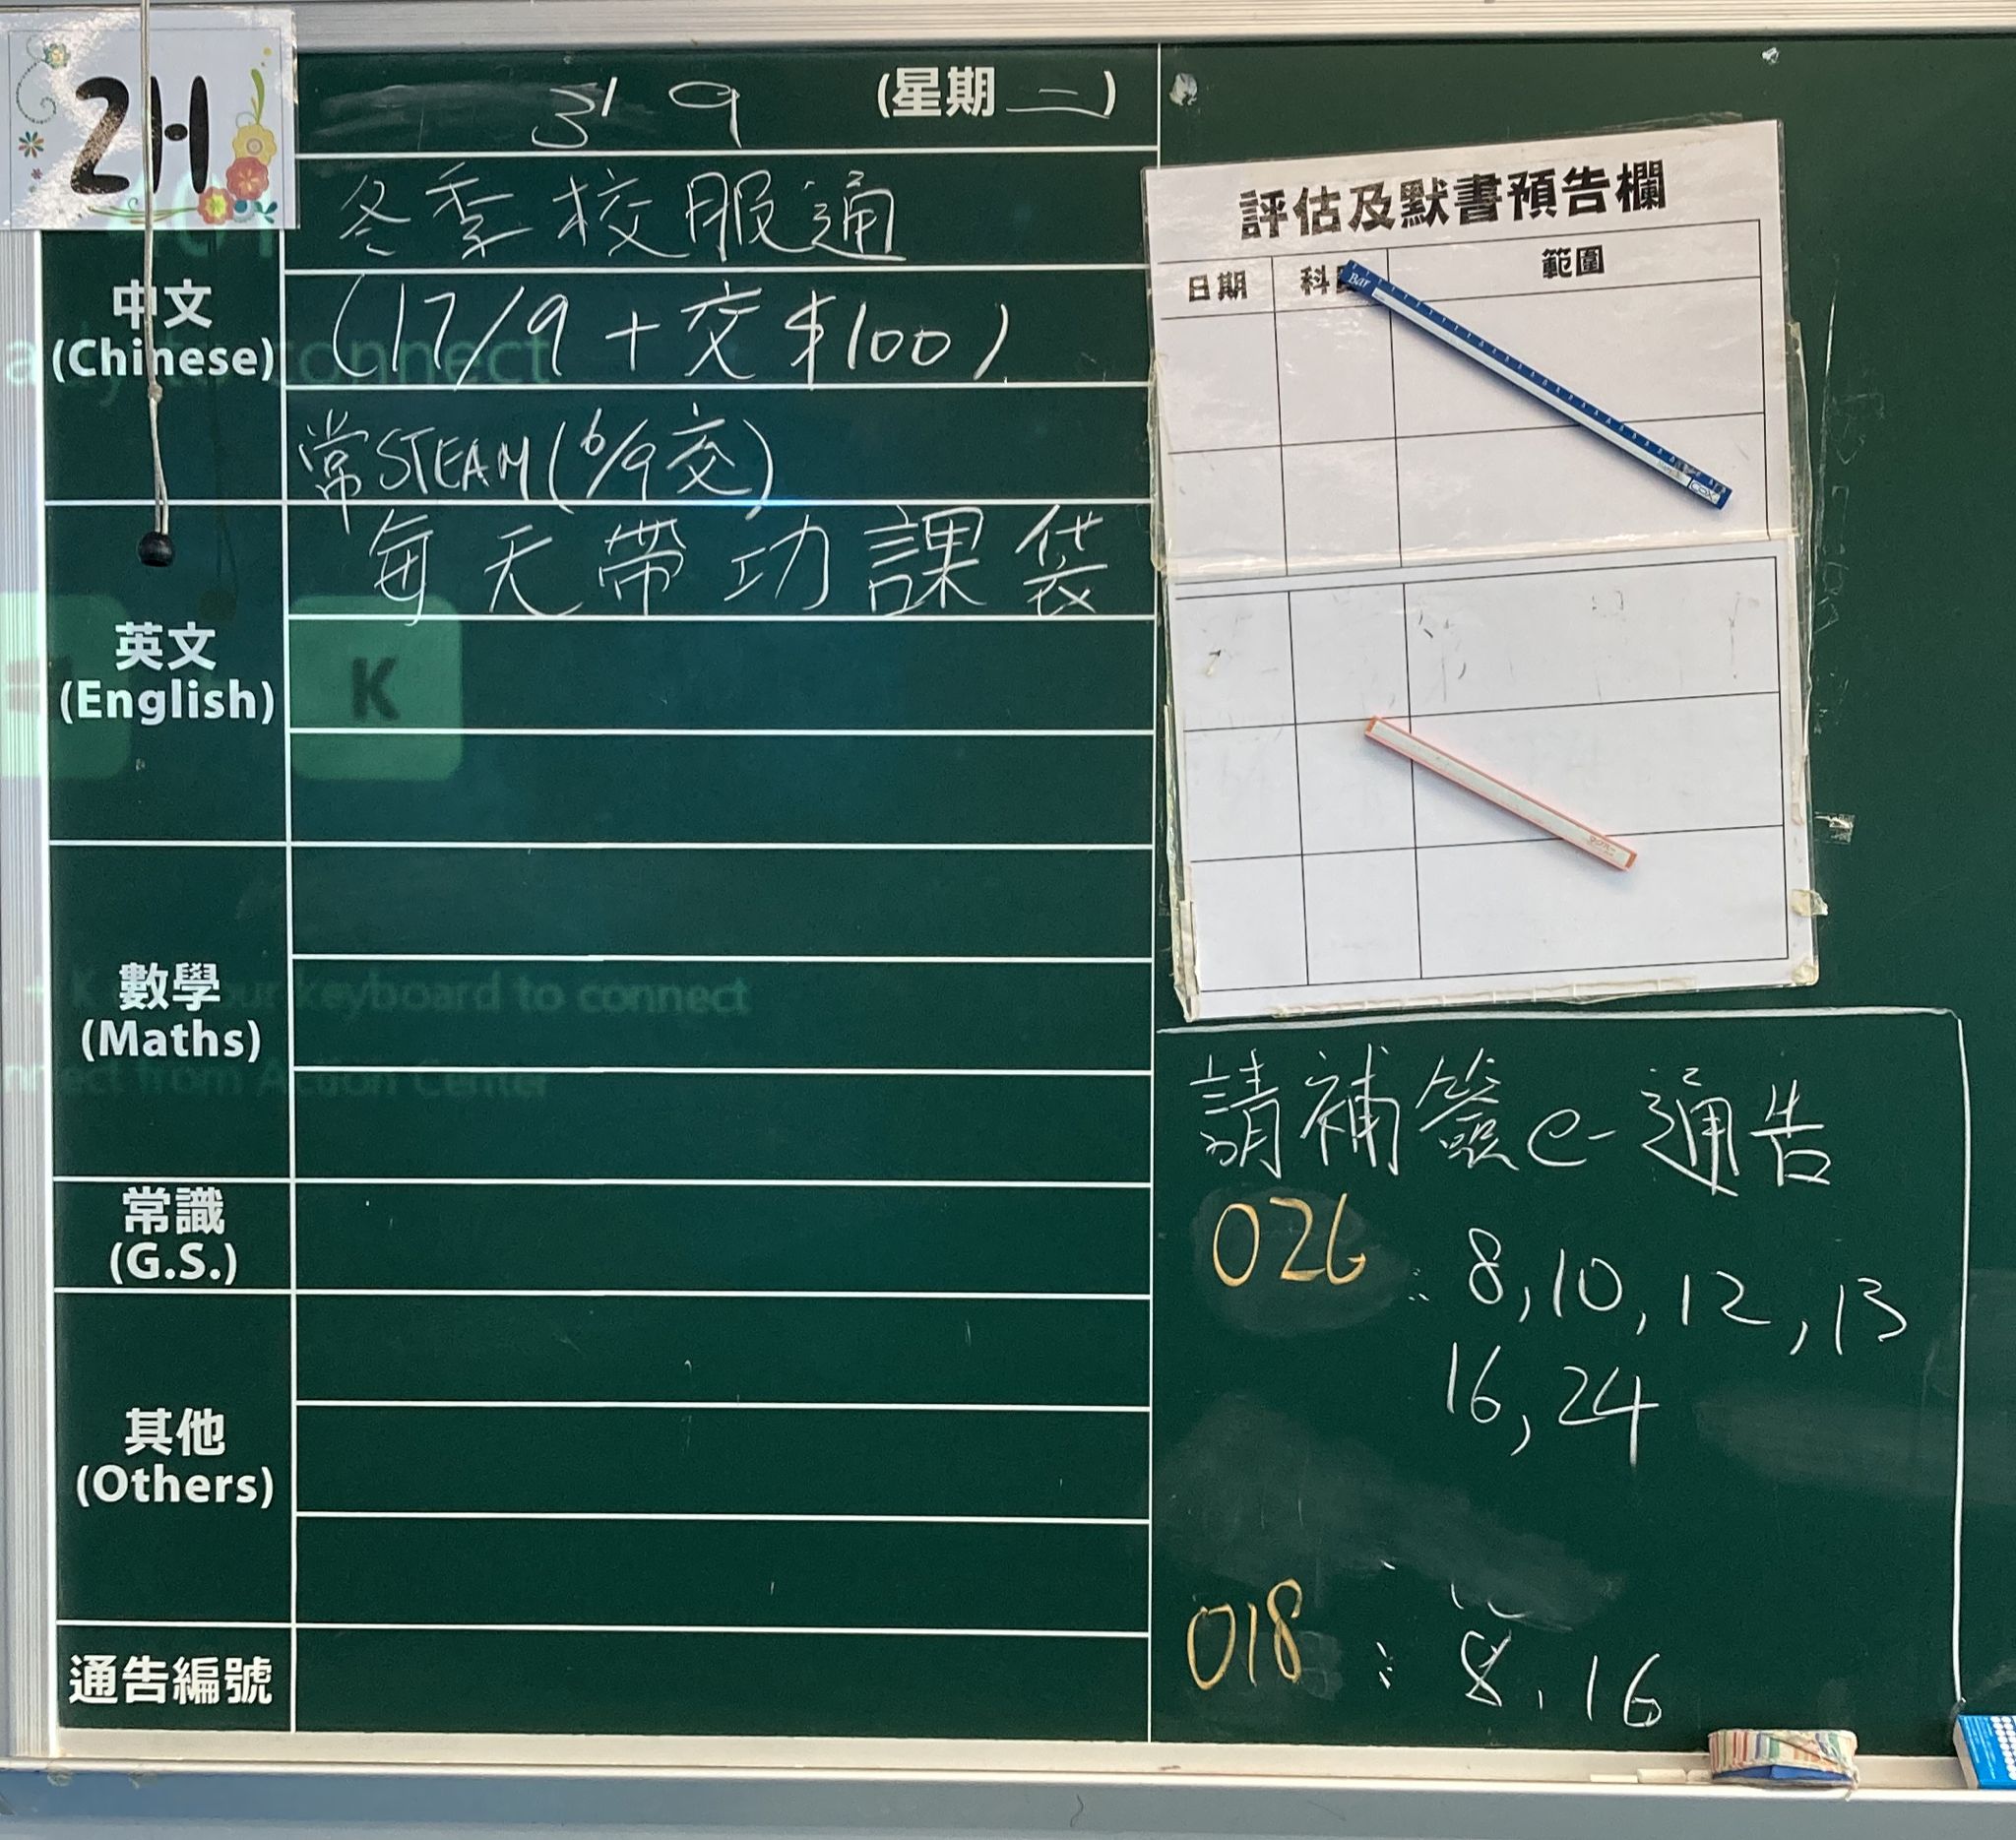 2H
3/9 (星期二)
冬季校服通
(17/9 + 交 $100)
常STEAM(6/9交)
每天帶功課袋
中文
(Chinese)
英文
(English)
數學
(Maths)
常識
(G.S.)
其他
(Others)
通告編號
connect
K
keyboard to connect
from Action Center
評估及默書預告欄
日期 科 範圍
Bar
請補簽e-通告
026 : 8, 10, 12, 13
16, 24
018 : 8, 16